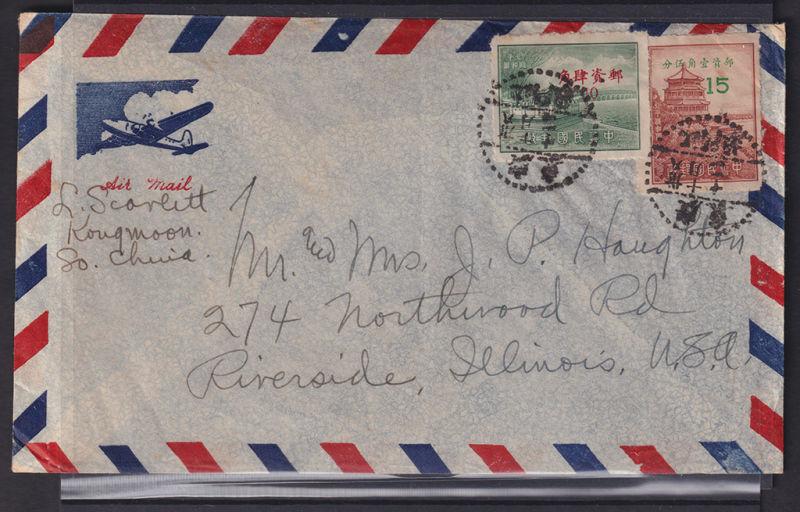 Air Mail
L. Scarlett
Kongmoon.
So. China.
Mr. and Mrs. J. P. Haughton
274 Northwood Rd
Riverside, Illinois, U.S.A.
角肆資郵
40
分伍角壹資郵
15